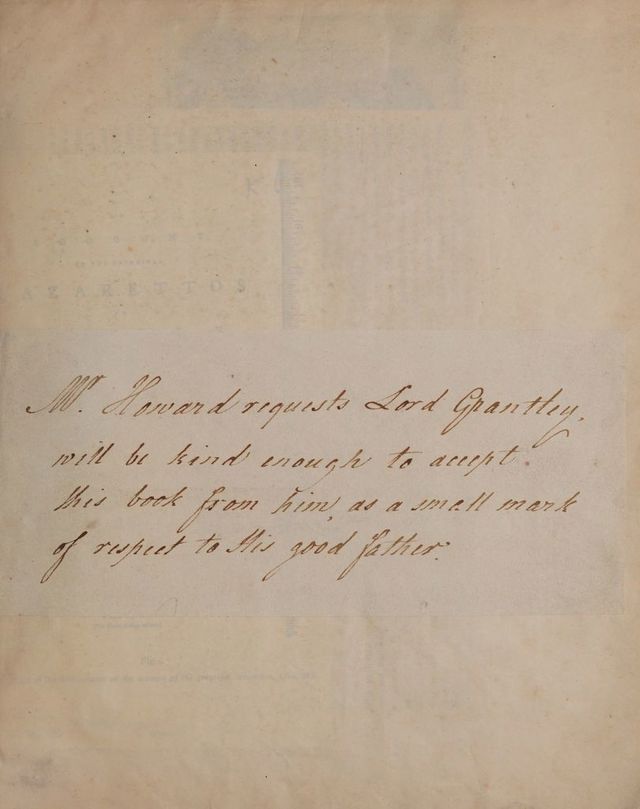 AZARETTOS
Mr. Howard requests Lord Grantley,
will be kind enough to accept
this book from him, as a small mark
of respect to His good father.